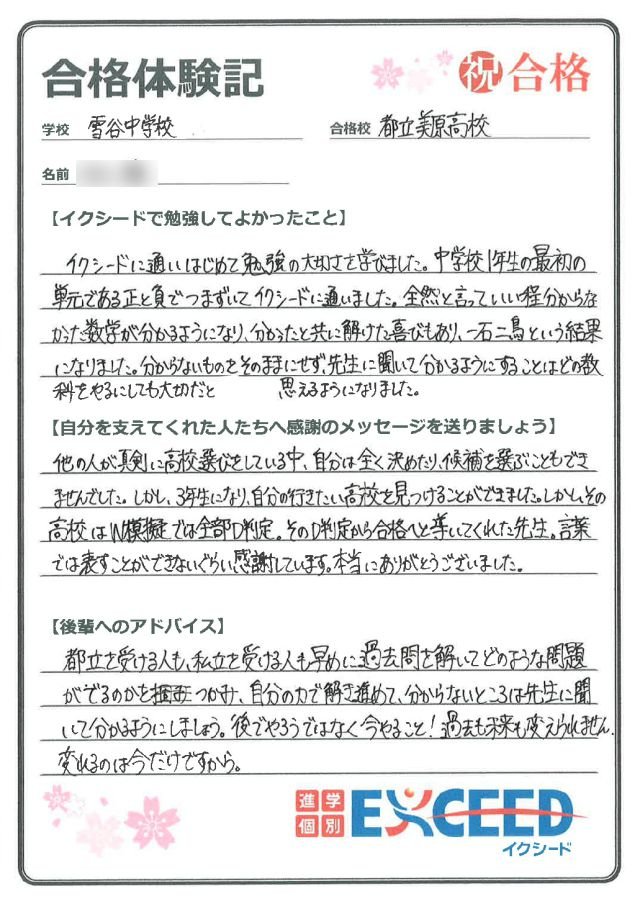 合格体験記
祝 合格
学校 雪谷中学校
合格校 都立美原高校
名前
【イクシードで勉強してよかったこと】
イクシードに通いはじめて勉強の大切さを学びました。中学校1年生の最初の
単元である正と負でつまずいてイクシードに通いました。全然と言っていい程分からな
かった数学が分かるようになり、分かったと共に解けた喜びもあり、一石二鳥という結果
になりました。分からないものをそのままにせず、先生に聞いて分かるようにすることはどの教
科をやるにしても大切だと 思えるようになりました。
【自分を支えてくれた人たちへ感謝のメッセージを送りましょう】
他の人が真剣に高校選びをしている中、自分は全く決めたり、候補を選ぶこともでき
ませんでした。しかし、3年生になり、自分の行きたい高校を見つけることができました。しかし、その
高校はW模擬では全部D判定。そのD判定から合格へと導いてくれた先生。言葉
では表すことができないぐらい感謝しています。本当にありがとうございました。
【後輩へのアドバイス】
都立を受ける人も、私立を受ける人も早めに過去問を解いてどのような問題
がでるのかを つかみ、自分の力で解き進めて、分からないところは先生に聞
いて分かるようにしましょう。後でやろうではなく今やること!過去も未来も変えられません。
変れるのは今だけですから。
進学
個別
EXCEED
イクシード